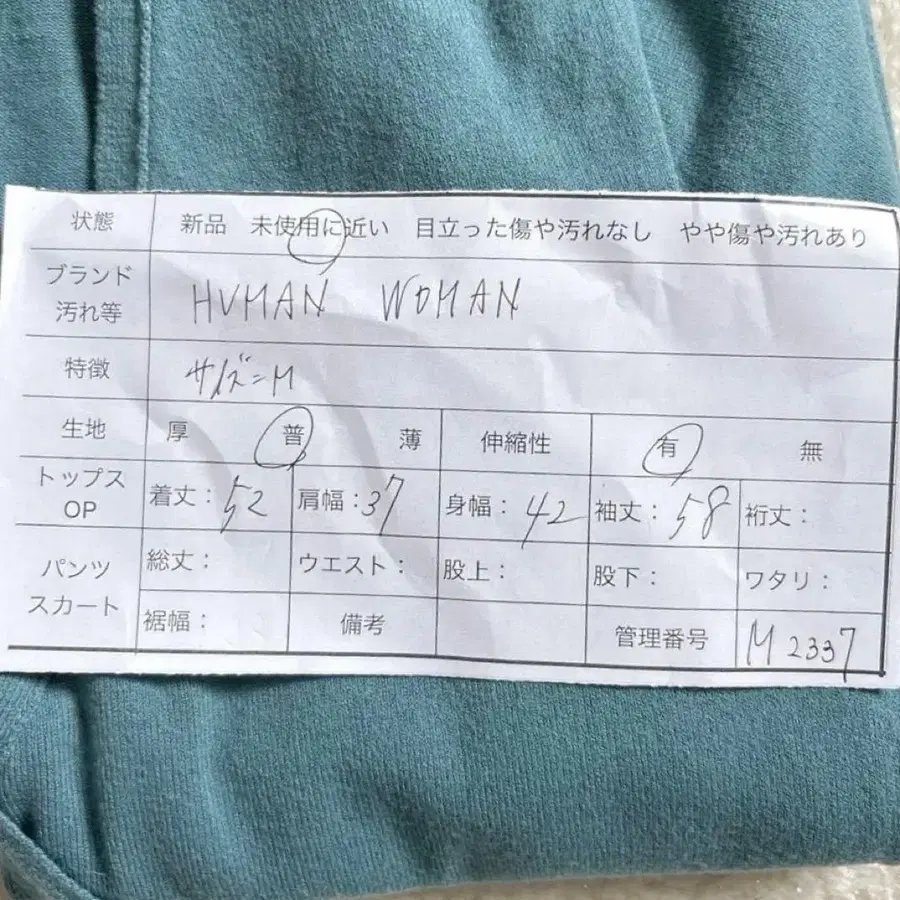 状態 新品 未使用に近い 目立った傷や汚れなし やや傷や汚れあり
ブランド 汚れ等 HUMAN WOMAN
特徴 サイズ=M
生地 厚 普 薄 伸縮性 有 無
トップス OP 着丈:52 肩幅:37 身幅:42 袖丈:58 裄丈:
パンツ スカート 総丈: ウエスト: 股上: 股下: ワタリ:
裾幅: 備考 管理番号 M2337